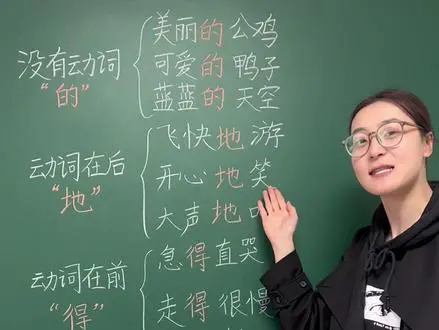 没有动词
“的”
美丽的公鸡
可爱的鸭子
蓝蓝的天空
动词在后
“地”
飞快地游
开心地笑
大声地
动词在前
“得”
急得直哭
走得很慢